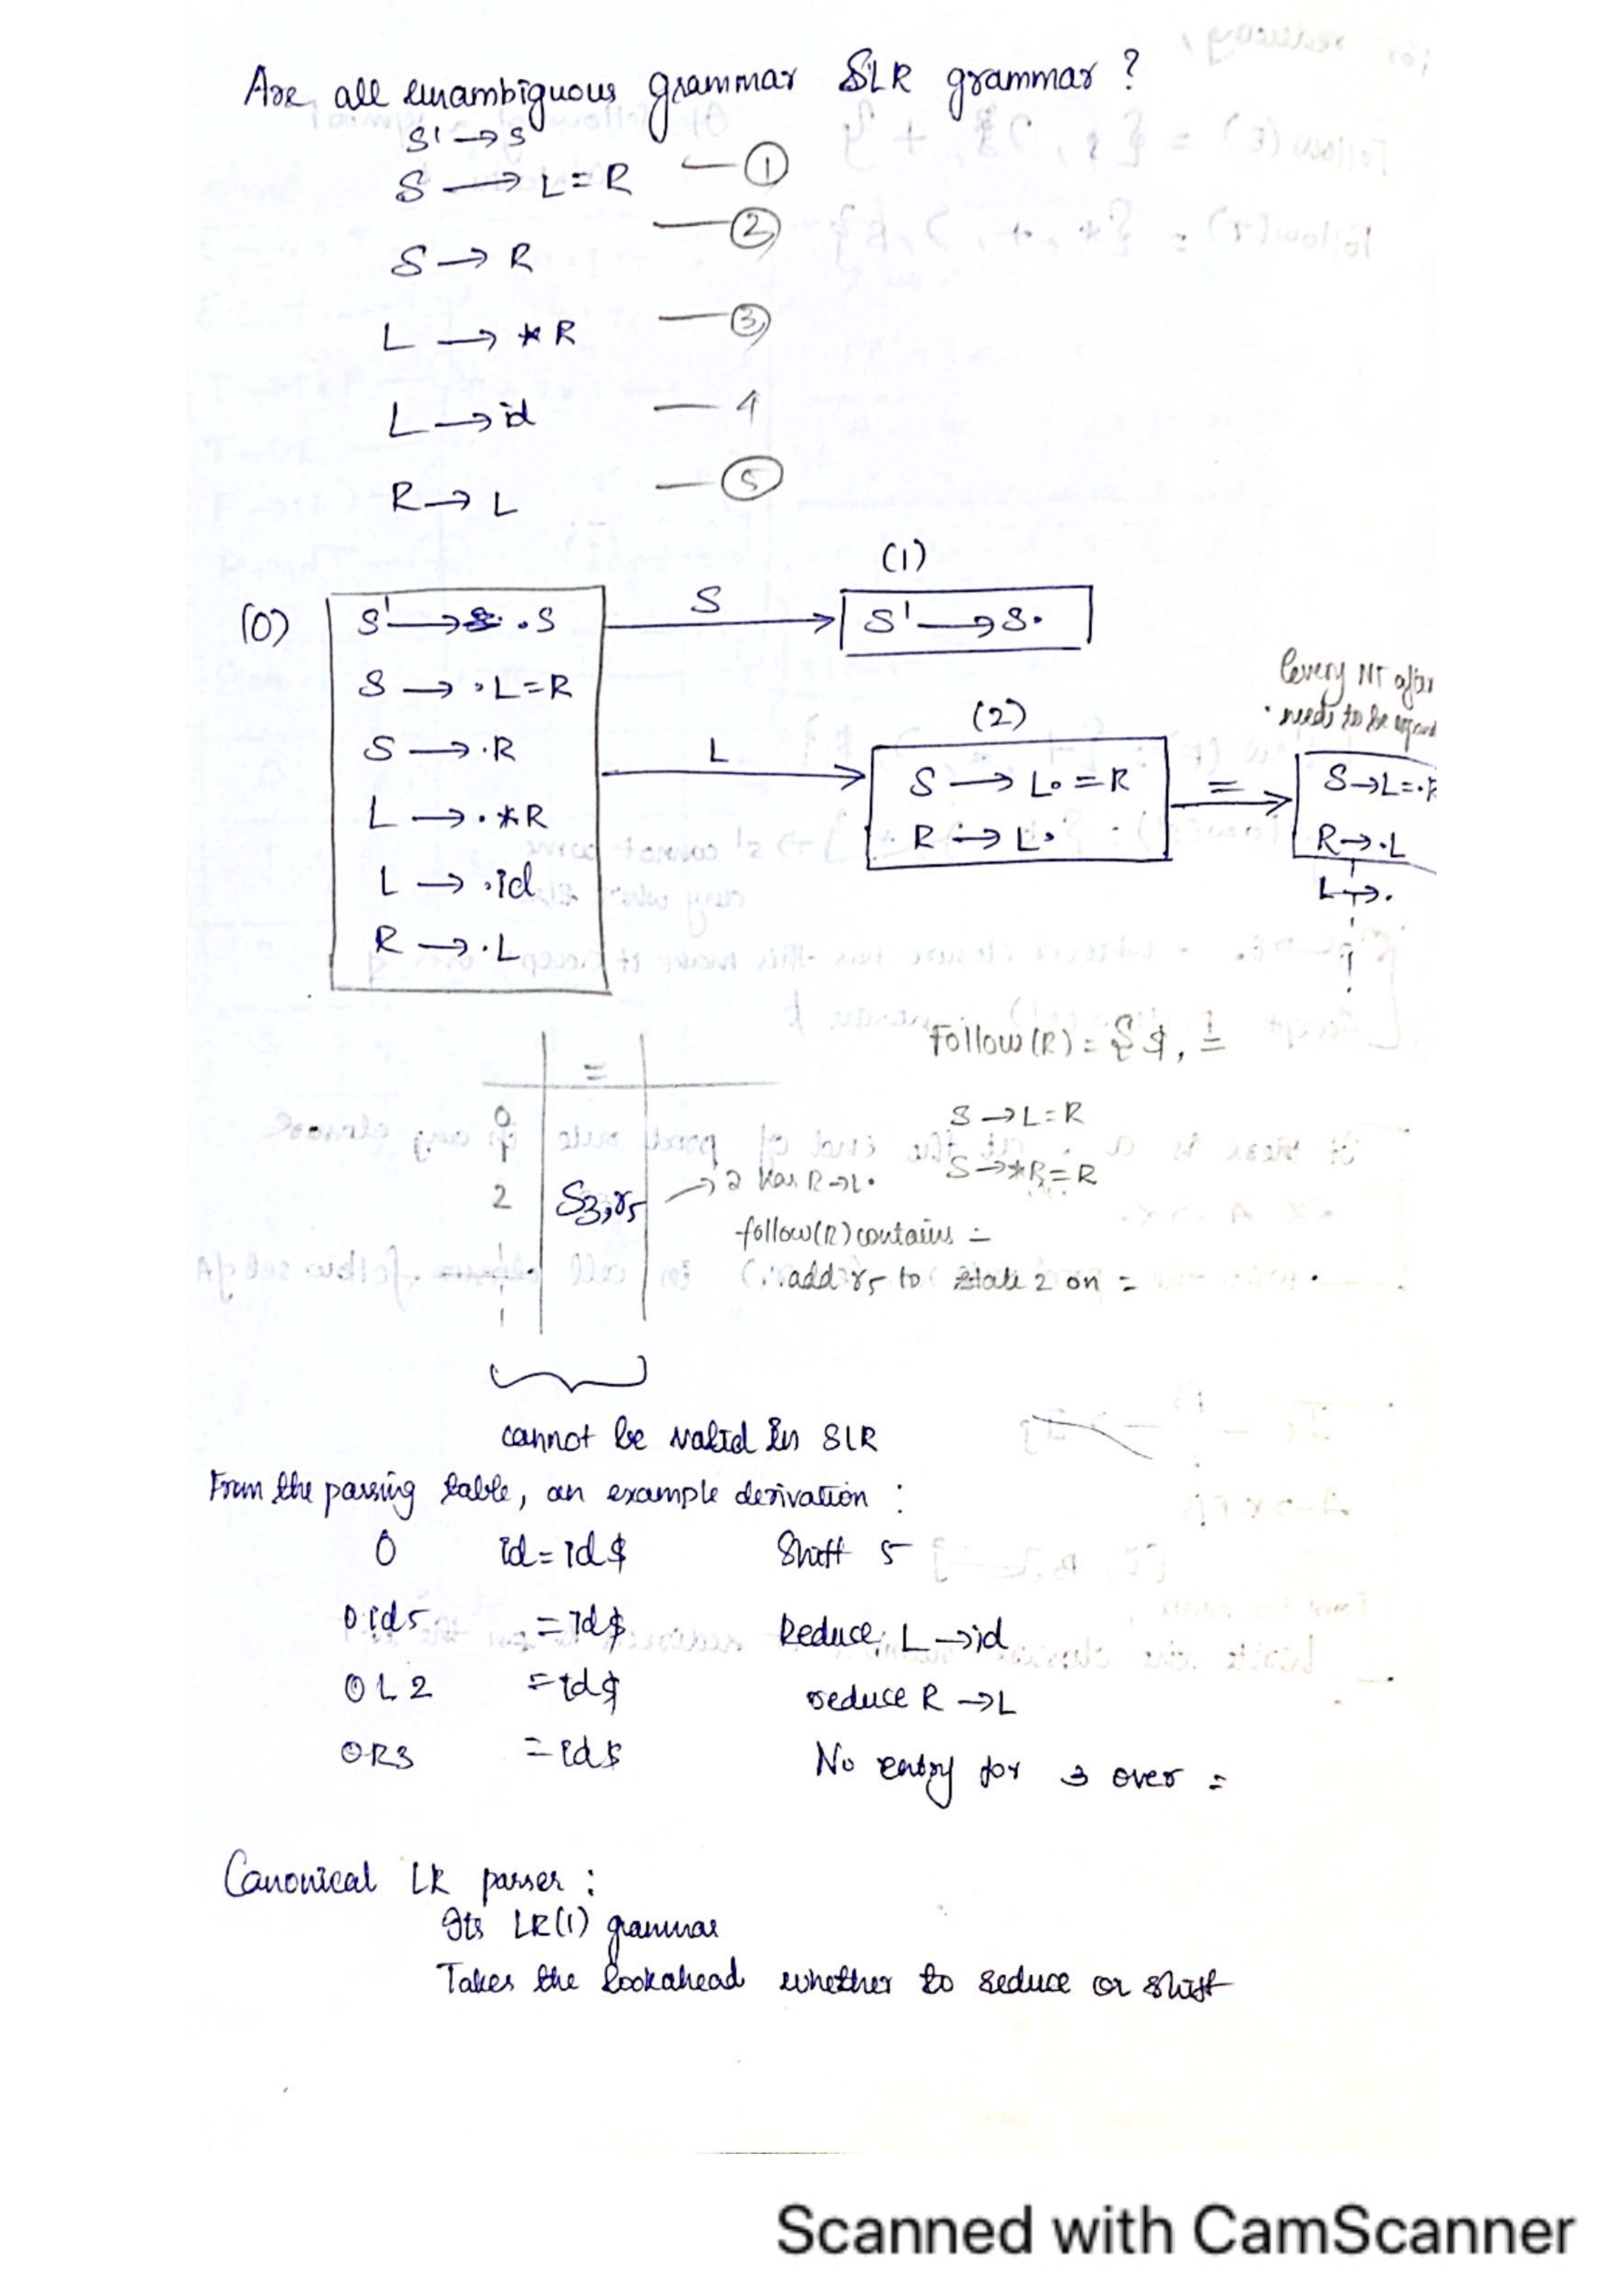 Are all unambiguous grammar SLR grammar ?
S' → S
S → L = R — ①
S → R — ②
L → * R — ③
L → id — 4
R → L — ⑤
(0)
S' → . S
S → . L = R
S → . R
L → . * R
L → . id
R → . L
S
(1)
S' → S .
L
(2)
S → L . = R
R → L .
=
every NT after
. needs to be
S → L = .
R → . L
L → .
Follow (R) = { $, =
S → L = R
S → * R = R
=
0
1
2 S3, r5 → 2 has R → L .
follow (R) contains =
∴ add r5 to state 2 on =
cannot be valid in SLR
From the parsing table, an example derivation :
0 id = id $ Shift 5
0 id 5 = id $ Reduce, L → id
0 L 2 = id $ reduce R → L
0 R 3 = id $ No entry for 3 over =
Canonical LR parser :
Its LR(1) grammar
Takes the lookahead whether to reduce or shift
Scanned with CamScanner